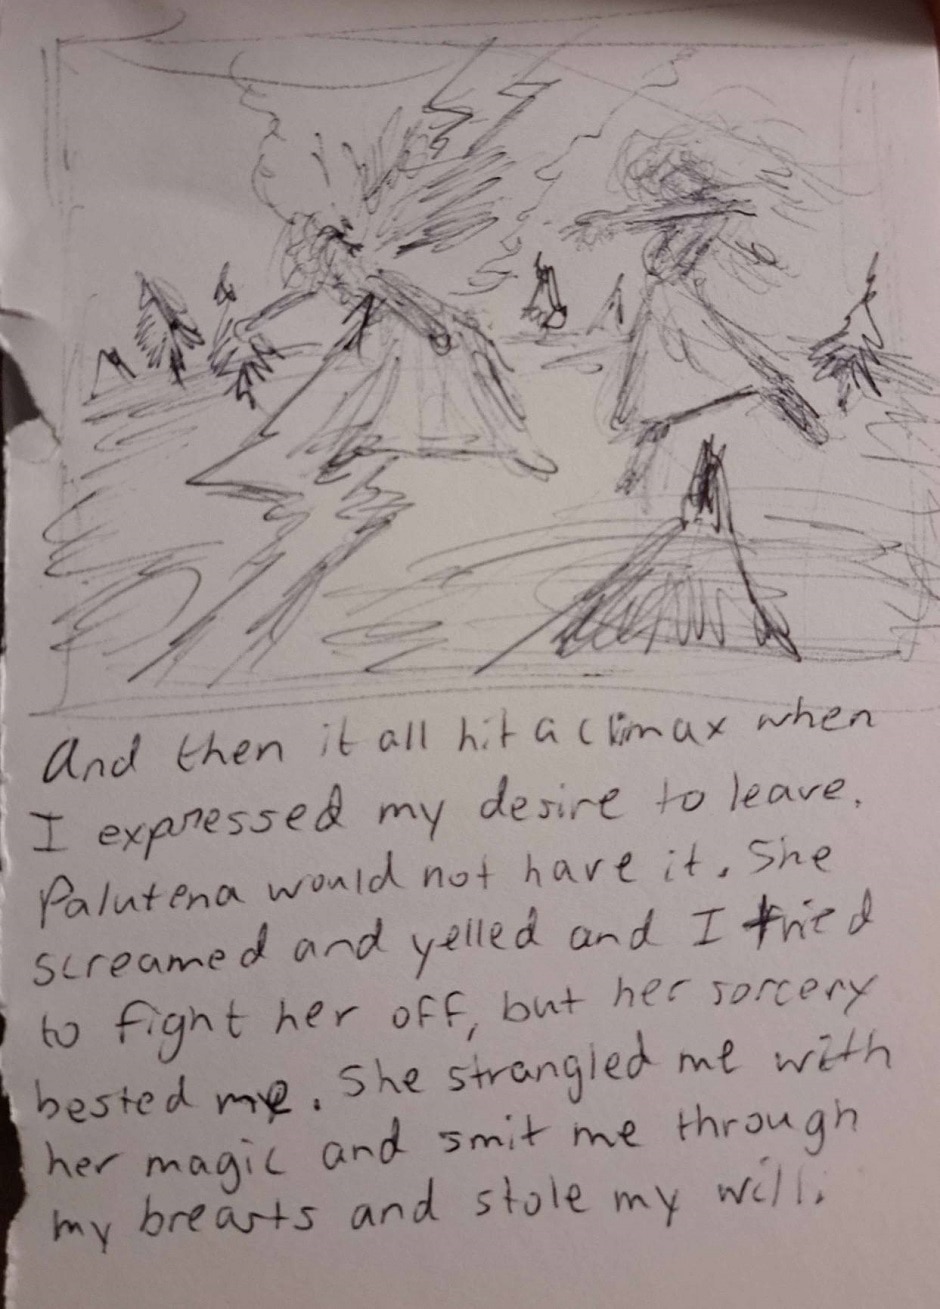 And then it all hit a climax when
I expressed my desire to leave.
Palutena would not have it. She
screamed and yelled and I tried
to fight her off, but her sorcery
bested me. She strangled me with
her magic and smit me through
my breasts and stole my will.